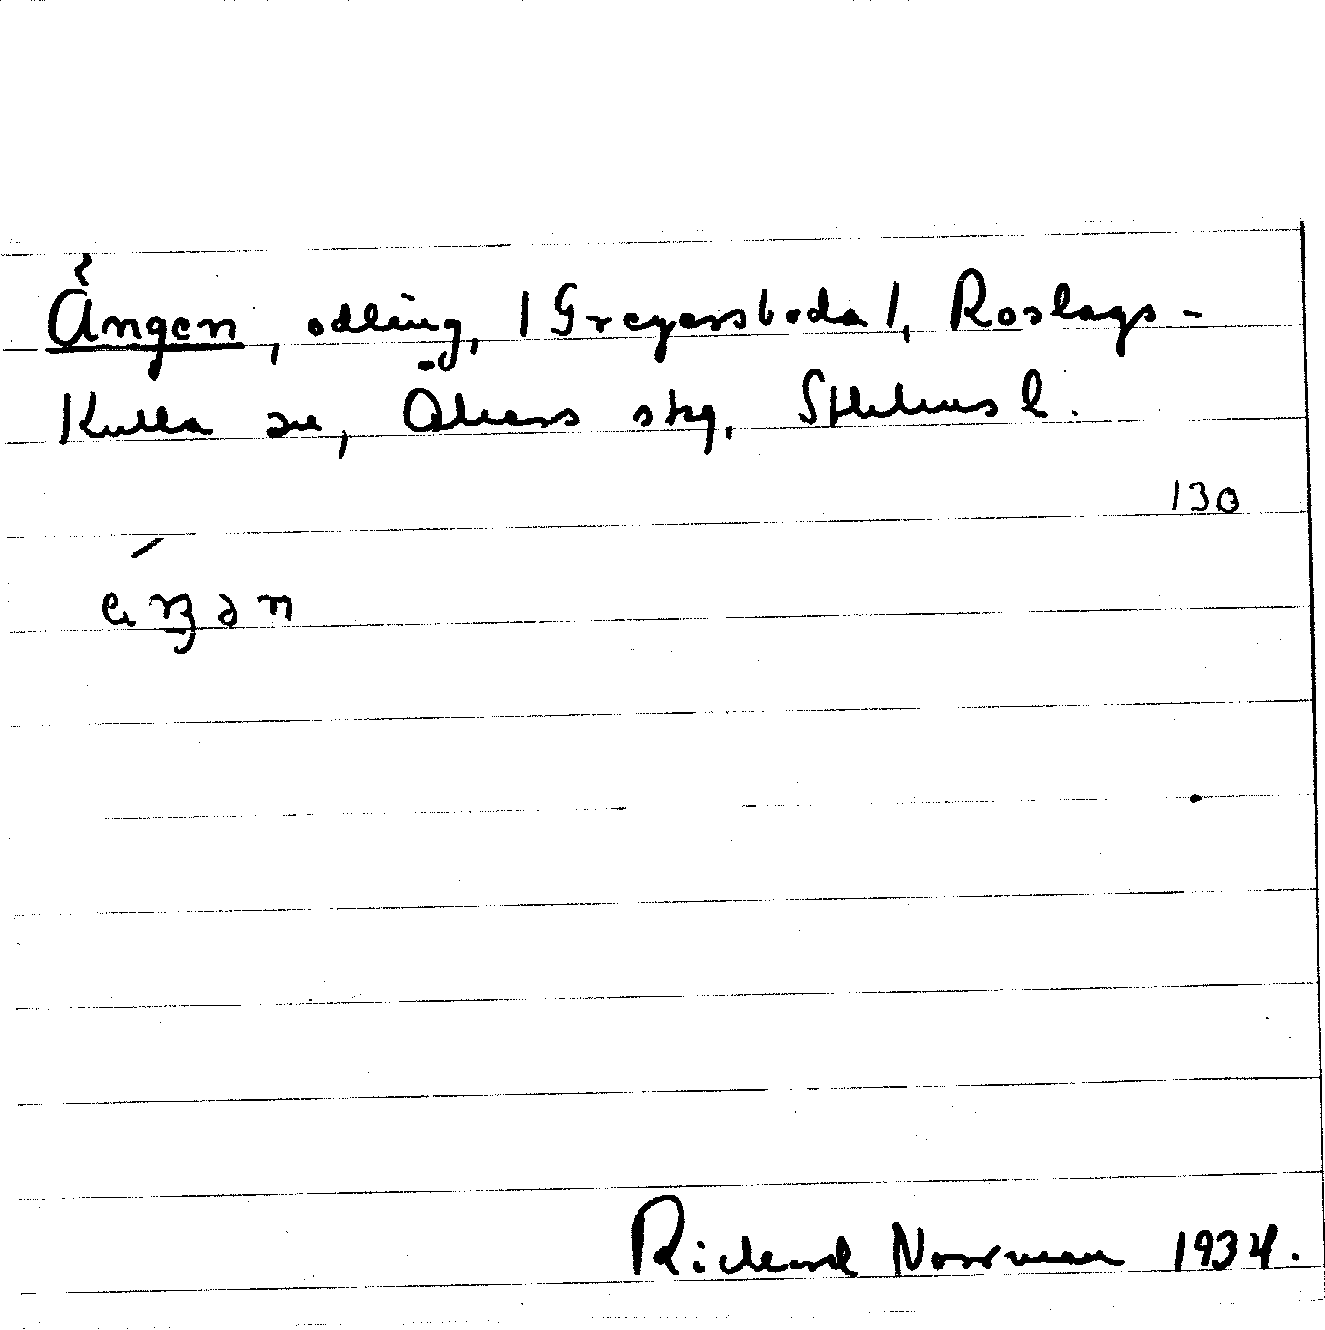 Ängen, odling, /Gregersboda/, Roslags-
Kulla sn, Åkers skg, Sthlms l.
130
Richard Norrman 1934.